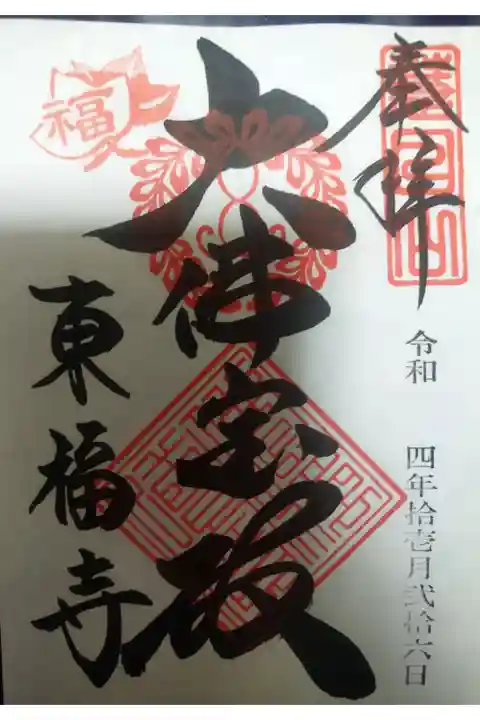 奉拝
令和 四年拾壱月弐拾六日
大佛宝殿
福
東福寺